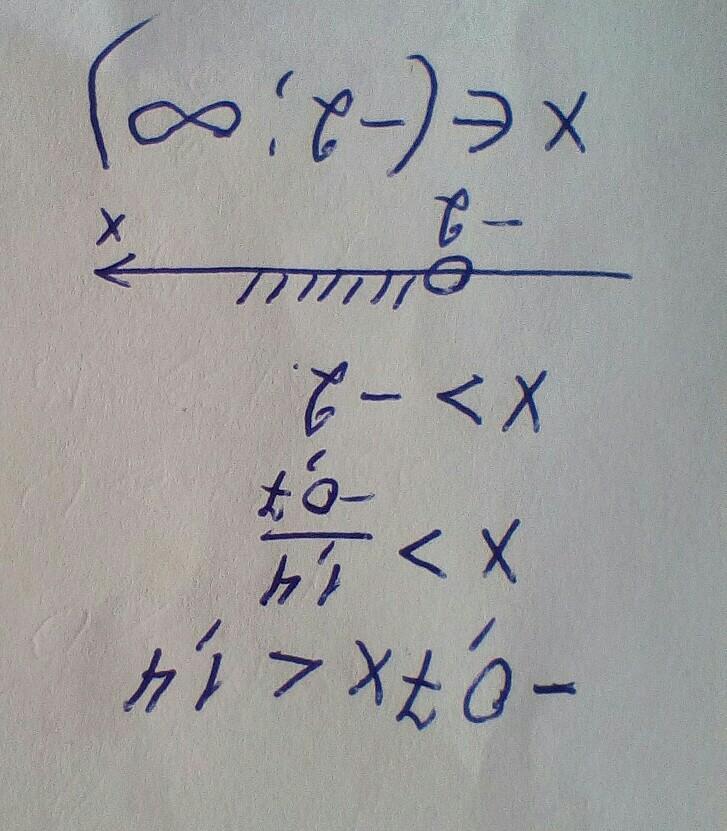 -0,7x < 1,4
x > 1,4/-0,7
x > -2
-2 x
x ∈ (-2; ∞)